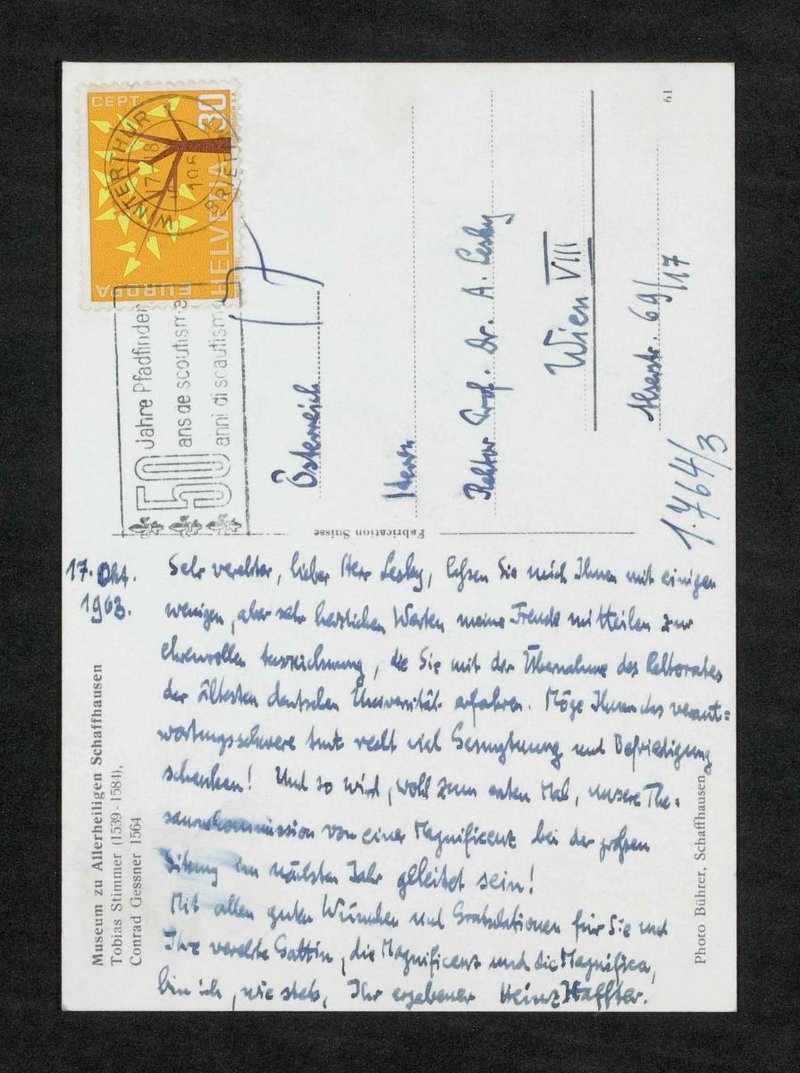 CEPT
30
HELVETIA
EUROPA
WINTERTHUR
17.
BRIEF
50 Jahre Pfadfinder
ans de scoutisme
anni di scautismo
Österreich
Herrn
Rektor Prof. Dr. A. Lesky
Wien VIII
Alserstr. 69/17
61
1.764/3
Fabrication Suisse
17. Okt.
1963.
Sehr verehrter, lieber Herr Lesky, lassen Sie mich Ihnen mit einigen
wenigen, aber sehr herzlichen Worten meine Freude mitteilen zur
ehrenvollen Auszeichnung, die Sie mit der Übernahme des Rektorates
der ältesten deutschen Universität erfahren. Möge Ihnen das verant=
wortungsschwere Amt recht viel Genugtuung und Befriedigung
schenken! Und so wird, wohl zum ersten Mal, unsere The-
sauruskommission von einer Magnificenz bei der großen
Sitzung im nächsten Jahr geleitet sein!
Mit allen guten Wünschen und Gratulationen für Sie und
Ihre verehrte Gattin, die Magnificenz und die Magnifica,
bin ich, wie stets, Ihr ergebener Heinz Haffter.
Museum zu Allerheiligen Schaffhausen
Tobias Stimmer (1539-1584),
Conrad Gessner 1564
Photo Bührer, Schaffhausen